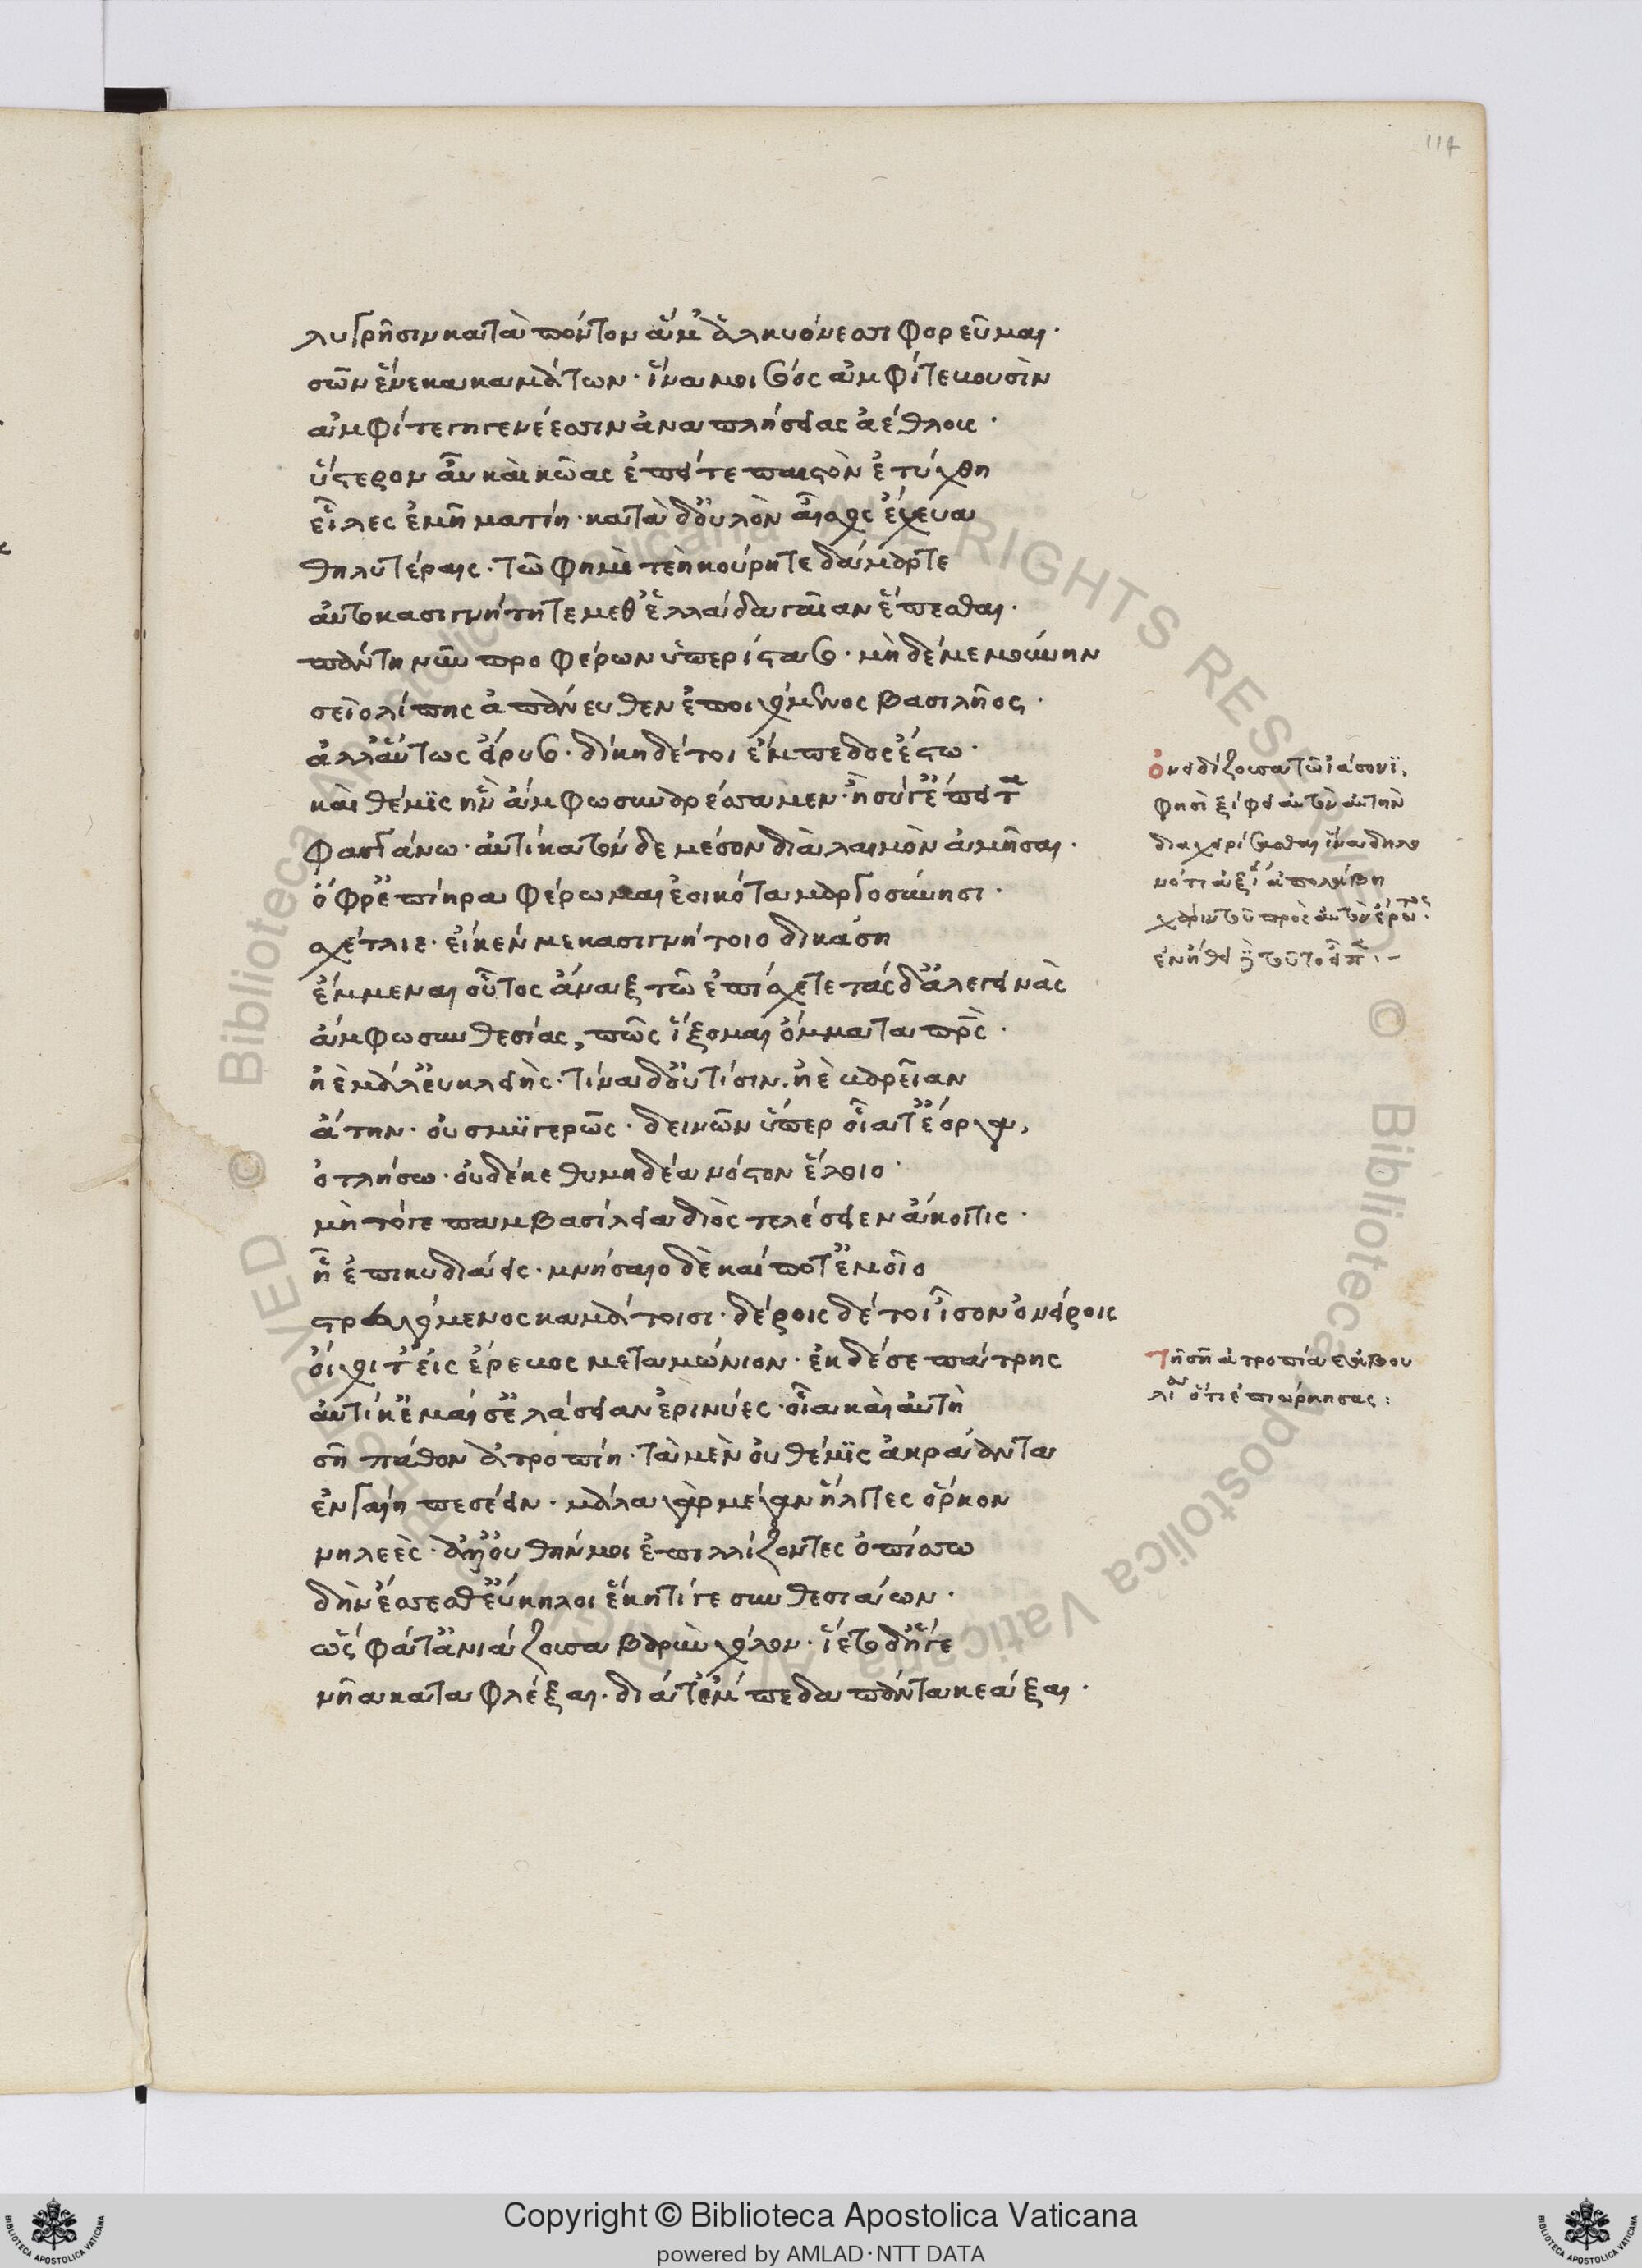 114
λυγρῇσιν κατὰ πόντον ἅμ' ἀλκυόνεσσι φορεῦμαι·
σῶν ἕνεκα καμάτων· ἵνα μοι σόος ἀμφί τε βουσὶν
ἀμφί τε γηγενέεσσιν ἀναπλήσειας ἀέθλους·
ὕστερον αὖ καὶ κῶας ἐπεί τε παϊστὸν ἐτύχθη
εἷλες ἐμῇ ματίῃ· κατὰ δ' οὐλοὸν αἶσχος ἔχευα
θηλυτέραις· τῶ φημὶ τεὴ κούρη τε δάμαρ τε
αὐτοκασιγνήτη τε μεθ' ἑλλάδα γαῖαν ἕπεσθαι·
πάντη νῦν προφέρων ὑπερίστασο· μὴ δέ με μούνην
σεῖο λίπῃς ἀπάνευθεν ἐποιχόμενος βασιλῆος·
ἀλλ' αὔτως εἴρυσο· δίκη δέ τοι ἔμπεδος ἔστω·
καὶ θέμις ἣν ἄμφω συναρέσσαμεν· ἢ σύ γ' ἔπειτα
φασγάνω· αὐτίκα τόνδε μέσον διὰ λαιμὸν ἀμῆσαι·
ὄφρ' ἐπίηρα φέρωμαι ἐοικότα μαργοσύνῃσι·
σχέτλιε· εἴ κέν με κασιγνήτοιο δικάσῃ
ἔμμεναι οὗτος ἄναξ τῶ ἐπίσχετε τάσδ' ἀλεγεινὰς
ἄμφω συνθεσίας, πῶς ἵξομαι ὄμματα πρς·
ἠὲ μάλ' εὐκλειής· τίνα δ' οὐ τίσιν· ἠὲ βαρεῖαν
ἄτην· οὐ σμυγερῶς· δεινῶν ὕπερ οἷά τ' ἔοργα,
ὀτλήσω· οὐ δέ κε θυμηδέα νόστον ἕλοιο·
μὴ τόγε παμβασίλεια διὸς τελέσειεν ἄκοιτις·
ᾗ ἐπικυδιάεις· μνήσαιο δὲ καί ποτ' ἐμοῖο
στρευγόμενος καμάτοισι· δέρος δέ τοι ἶσον ὀνείροις
οἴχοιτ' εἰς ἔρεβος μεταμώνιον· ἐκ δέ σε πάτρης
αὐτίκ' ἐμαί σ' ἐλάσειαν ἐρινύες· οἷα καὶ αὐτὴ
σῇ πάθον ἀτροπίῃ· τὰ μὲν οὐ θέμις ἀκράαντα
ἐν γαίῃ πεσέειν· μάλα γὰρ μέγαν ἤλιτες ὅρκον
νηλεές· ἀλλ' οὔ θήν μοι ἐπιλλίζοντες ὀπίσσω
δὴν ἔσσεσθ' εὔκηλοι ἕκητί γε συνθεσιάων·
ὣς φάτ' ἀνιάζουσα βαρὺν χόλον· ἵετο δ' ἥγε
νῆα καταφλέξαι· διά τ' ἔμπεδα πάντα κεάξαι·
ὀνειδίζουσα τῶ ἰάσονϊ,
φησὶ ξίφει αὐτὸν αὐτὴν
διαχειρίσασθαι ἵνα δηλο
νότι ἀξί ἀπολάβῃ
τὸν πρὸς αὐτὸν ἔρωτος·
Τῆ σῆ ἀτροπία
ὅτι ἐπιώρκησας:
Copyright © Biblioteca Apostolica Vaticana
powered by AMLAD·NTT DATA